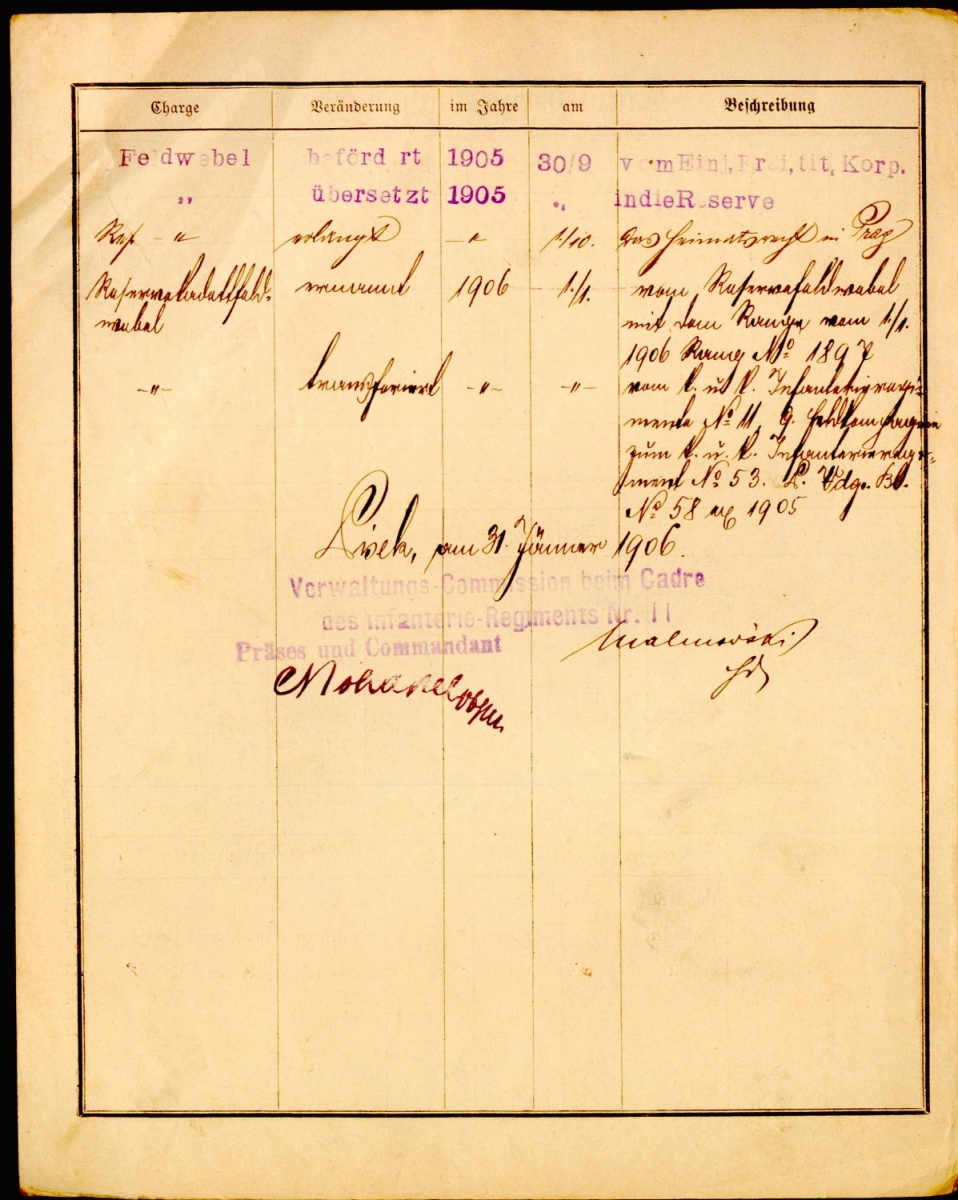 Charge Veränderung im Jahre am Beschreibung
Feldwebel befördert 1905 30/9 vom Einj, Frei, tit, Korp.
„ übersetzt 1905 „ in die Reserve
Res. -„- erlangt -„- 1/10. das Heimatsrecht in Prag
Reservekadettfeld- ernannt 1906 1./1. vom Reservefeldwebel
webel mit dem Range vom 1./1.
1906 Rang No 1897
-„- transferiert -„- -„- vom k. u. k. Infanterieregi-
mente No 11 9. Feldkompagnie
zum k. u. k. Infanterieregi-
ment No 53.
No 58 ex 1905
Pisek, am 31. Jänner 1906.
Verwaltungs-Commission beim Cadre
des Infanterie-Regiments Nr. 11
Präses und Commandant